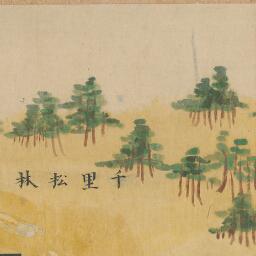 千里松林